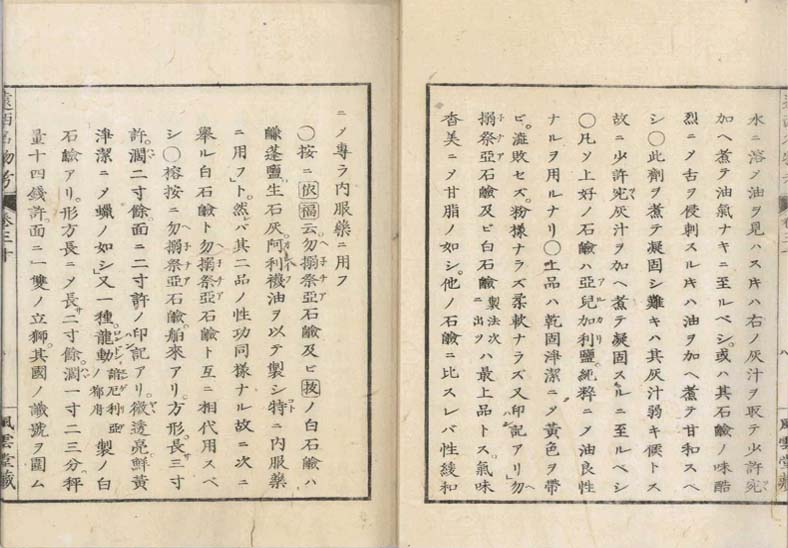 水ニ溶ノ油ヲ見ハスキハ右ノ灰汁ヲ取テ少許宛
加ヘ煮テ油氣ナキニ至ルベシ。或ハ其石鹸ノ味酷
烈ニメ舌ヲ侵刺スルキハ油ヲ加ヘ煮テ甘和スベ
シ〇此劑ヲ煮テ凝固シ難キハ其灰汁弱キ候トス
故ニ少許宛灰汁ヲ加ヘ煮テ凝固スルニ至ルベシ
〇凡ソ上好ノ石鹸ハ亞兒加利鹽。純粹ニメ油良性
ナルヲ用ルナリ〇上品ハ乾固淨潔ニメ黄色ヲ帶
ビ。敗セズ。粉様ナラズ柔軟ナラズ又印記アリ」勿
搦祭亞石鹸及ビ白石鹸製法次ニ出ツハ最上品トス。氣味
香美ニメ甘脂ノ如シ。他ノ石鹸ニ比スレバ性緩和
風雲堂藏
ニメ專ラ内服藥ニ用フ
〇按ニ依福云勿搦祭亞石鹸及ビ按ノ白石鹸ハ
鎌蓬鹽。生石灰。阿利襪油ヲ以テ製シ特ニ内服藥
ニ用フ」ト。然バ其二品ノ性功同様ナル故ニ次ニ
舉ル白石鹸ト勿搦祭亞石鹸ト互ニ相代用スベ
シ〇榕按ニ勿搦祭亞石鹸。舶來アリ。方形。長三寸
許。濶二寸餘。面ニ二寸許ノ印記アリ。微透亮鮮黄
淨潔ニメ蠟ノ如シ」又一種。龍動諳厄利亞ノ都府製ノ白
石鹸アリ。形方長ニメ長二寸餘。濶一寸二三分。秤
量十四錢許。面ニ一雙ノ立獅。其國ノ讖號ヲ圖ム
遠西名物考 卷三十
風雲堂藏